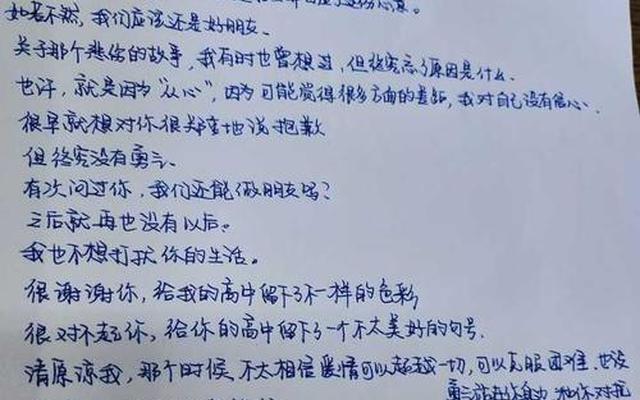 如若不然，我们应该还是好朋友。
关于那个悲伤的故事，我有时也曾想过，但终究忘了原因是什么。
也许，就是因为“从心”，因为可能觉得很多方面的差距，我对自己没有信心。
很早就想对你很郑重地说抱歉
但终究没有勇气。
有次问过你，我们还能做朋友吗？
之后就再也没有以后。
我也不想打扰你的生活。
很谢谢你，给我的高中留下了不一样的色彩
很对不起你，给你的高中留下了一个不太美好的句号。
请原谅我，那个时候不太相信爱情可以超越一切，可以克服困难．也没
勇气站在你身边 和你对抗